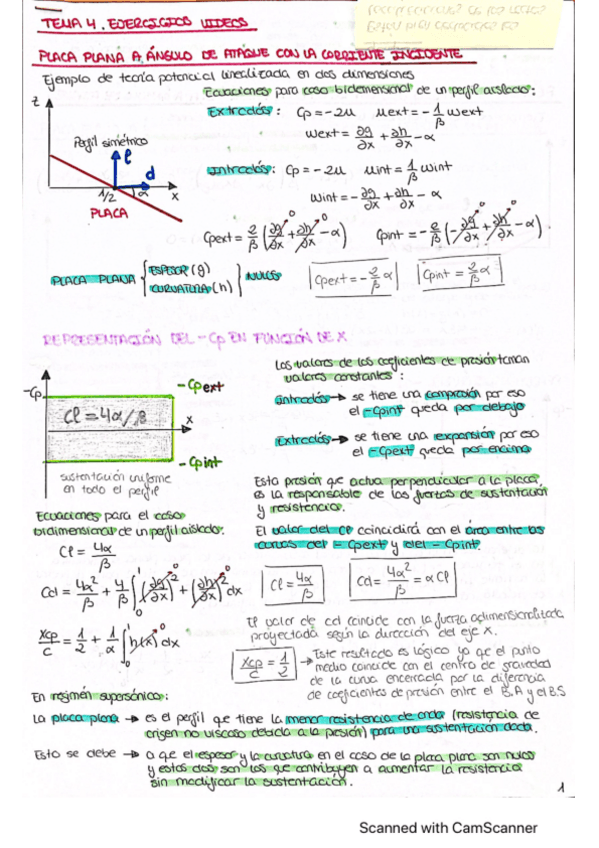 TEMA 4. EJERCICIOS VIDEOS
PLACA PLANA A ÁNGULO DE ATAQUE CON LA CORRIENTE INCIDENTE
Ejemplo de teoría potencial linealizada en dos dimensiones
Ecuaciones para caso bidimensional de un perfil aislado:
z
Perfil simétrico
l
d
1/2
α
x
PLACA
Extradós: Cp = -2u uext = -1/β wext
wext = ∂g/∂x + ∂h/∂x - α
Intradós: Cp = -2u uint = 1/β wint
wint = -∂g/∂x + ∂h/∂x - α
Cpext = 2/β (∂g/∂x + ∂h/∂x - α) Cpint = -2/β (-∂g/∂x + ∂h/∂x - α)
PLACA PLANA { ESPESOR (g) CURVATURA (h) } NULOS
Cpext = -2/β α Cpint = 2/β α
REPRESENTACIÓN DEL -Cp EN FUNCIÓN DE X
-Cp
-Cpext
Cl = 4α/β
x
-Cpint
sustentación uniforme
en todo el perfil
Los valores de los coeficientes de presión toman
valores constantes:
Intradós → se tiene una compresión por eso
el -Cpint queda por debajo
Extradós → se tiene una expansión por eso
el -Cpext queda por encima
Esta presión que actua perpendicular a la placa,
es la responsable de las fuerzas de sustentación
y resistencia.
El valor del Cl coincidirá con el área entre las
curvas del -Cpext y del -Cpint.
Ecuaciones para el caso
bidimensional de un perfil aislado:
Cl = 4α/β
Cd = 4α²/β + 4/β ∫₀¹ (∂g/∂x)² + (∂h/∂x)² dx
Cl = 4α/β Cd = 4α²/β = αCl
xcp/c = 1/2 + 1/α ∫₀¹ h(x) dx
El valor de cd coincide con la fuerza adimensionalizada
proyectada según la dirección del eje X.
xcp/c = 1/2
→ Este resultado es lógico ya que el punto
medio coincide con el centro de gravedad
de la curva encerrada por la diferencia
de coeficientes de presión entre el B.A y el B.S
En regimén supersónico:
La placa plana → es el perfil que tiene la menor resistencia de onda (resistencia de
origen no viscoso debida a la presión) para una sustentación dada.
Esto se debe → a que el espesor y la curvatura en el caso de la placa plana son nulos
y estos dos son los que contribuyen a aumentar la resistencia
sin modificar la sustentación.
1
Scanned with CamScanner